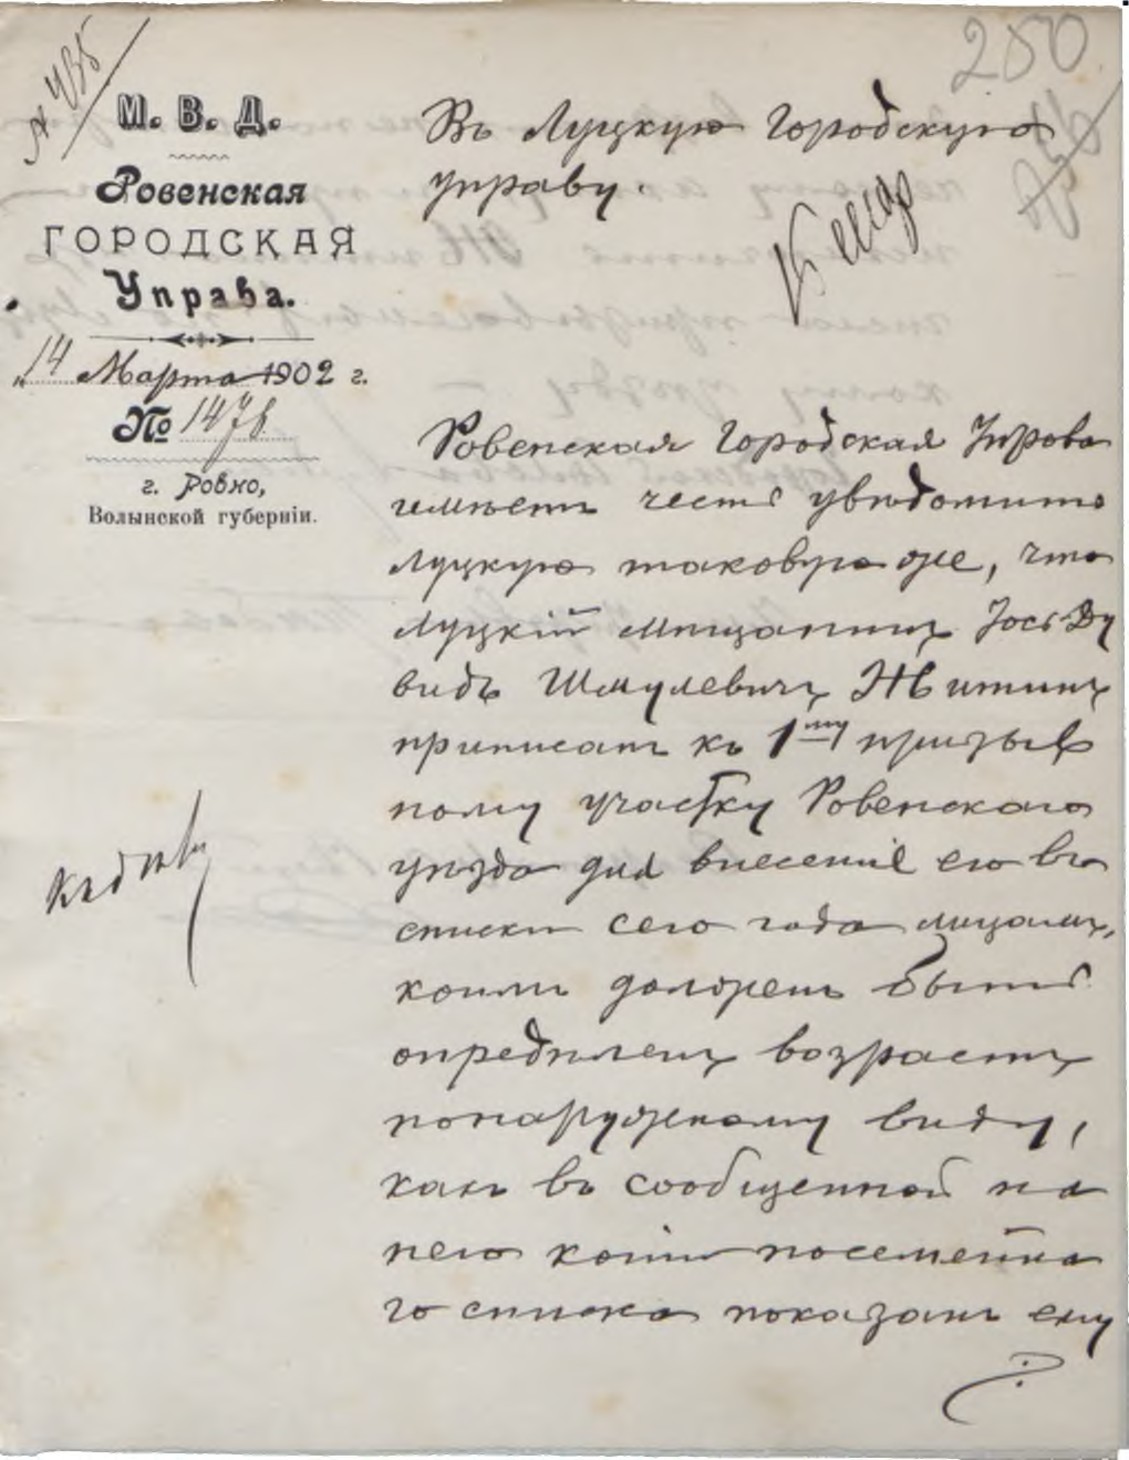 250
№ 435
М. В. Д.
Ровенская
ГОРОДСКАЯ
Управа.
„14 Марта 1902 г.
№ 1478
г. Ровно,
Волынской губерніи.
Въ Луцкую Городскую
управу.
Ровенская Городская Управа
имѣетъ честь увѣдомить
Луцкую таковую же, что
луцкій мѣщанинъ Іось Ду
видъ Шмулевичъ Житникъ
приписанъ къ 1му призыв
ному участку Ровенскаго
уѣзда для внесенія его въ
списки сего года лицами,
коимъ долженъ быть
опредѣленъ возрастъ
по наружному виду,
какъ въ сообщенной на
него копіи посемейна
го списка показанъ ему